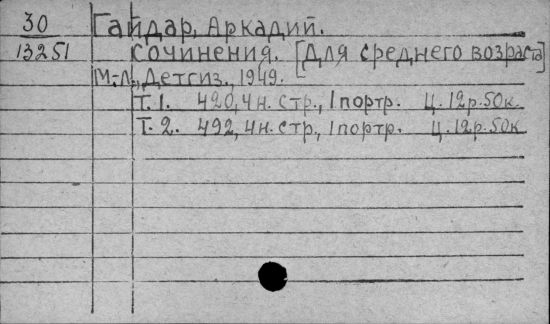 30
Гайдар, Аркадий.
13251
Сочинения. [Для среднего возраста]
М.-Л., Детгиз., 1949.
Т. 1. 420, 4 н. стр., 1 портр. Ц. 12 р. 50 к.
Т. 2. 492, 4 н. стр., 1 портр. Ц. 12 р. 50 к